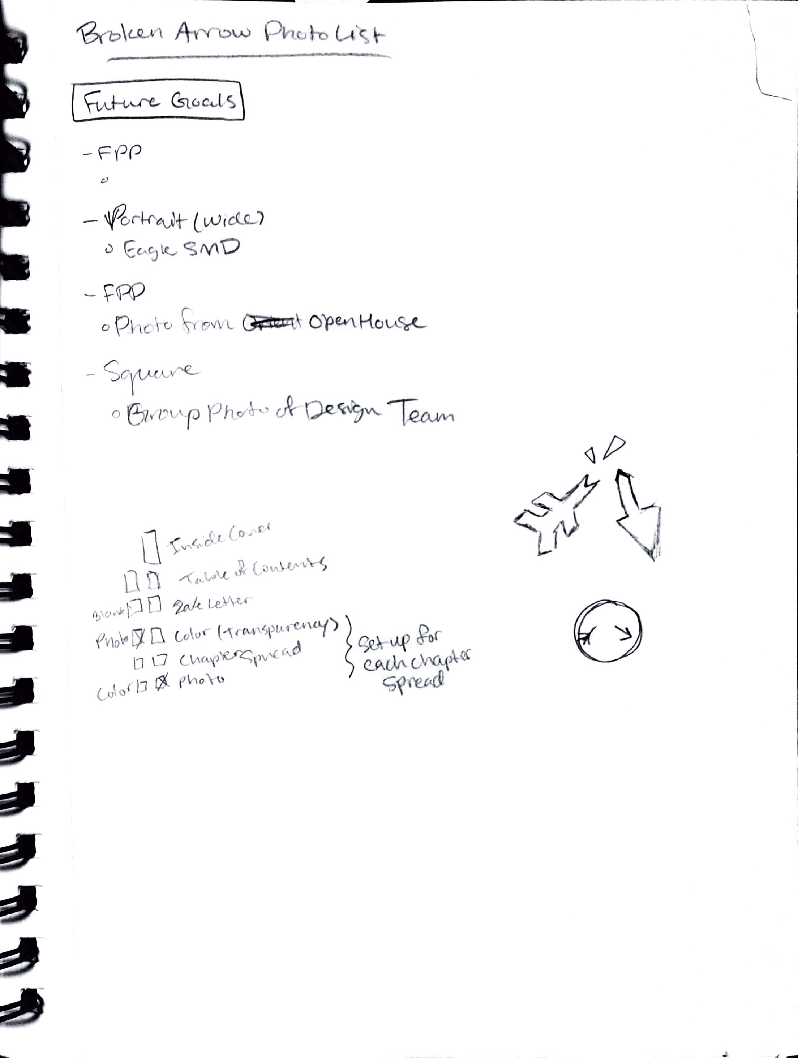 Broken Arrow Photo List
Future Goals
- FPP
- Portrait (wide)
Eagle SMD
- FPP
Photo from Open House
- Square
Group Photo of Design Team
Inside Cover
Table of Contents
Blank Letter
Photo Color (transparency)
Chapter Spread
Color Photo
Set up for
each chapter
spread